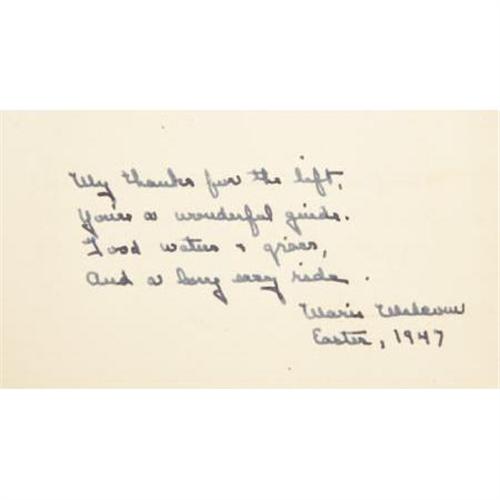 My thanks for the lift,
You're a wonderful guide.
Good water & grass,
And a long easy ride.
Easter, 1947